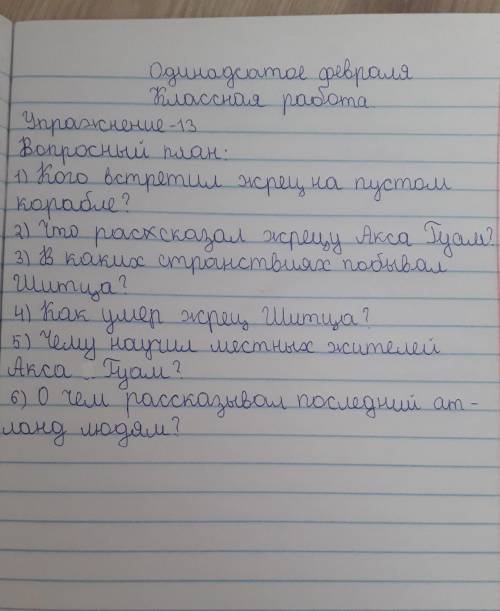 Одинадсатое февраля
Классная работа
Упражнение-13
Вопросный план:
1) Кого встретил жрец на пустом
корабле?
2) Что расхсказал жрецу Акса Гуам?
3) В каких странствиях побывал
Шитца?
4) Как умер жрец Шитца?
5) Чему научил местных жителей
Акса Гуам?
6) О чем рассказывал последний ат-
ланд людям?